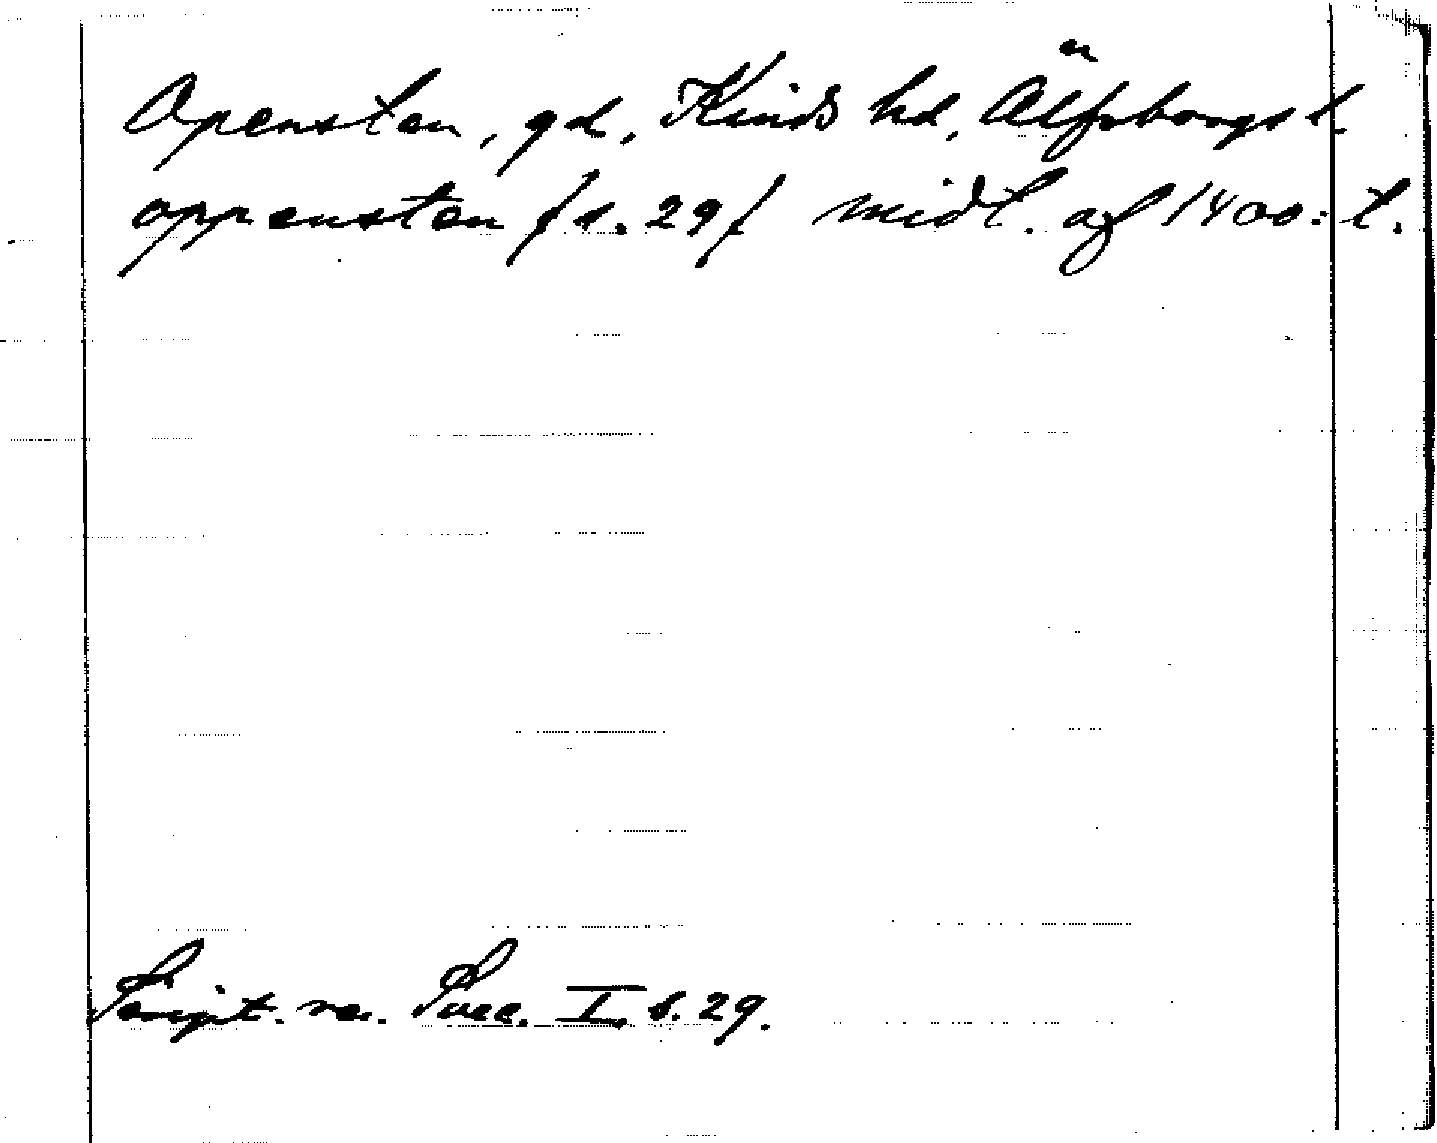 Opensten, gd, Kinds hd, Älfsborgs l.
oppensten (s. 29) midt. af 1400:t.
Script. rer. Suec. I. s. 29.